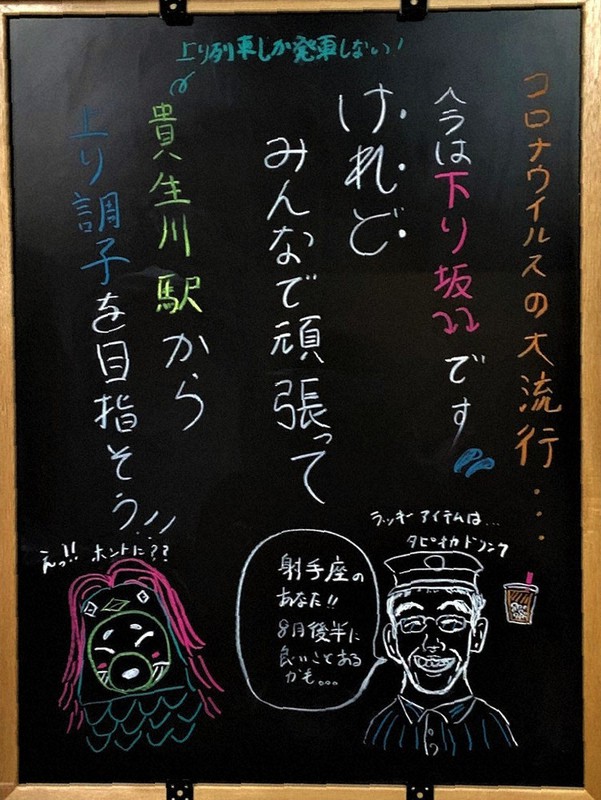 コロナウイルスの大流行...
今は下り坂です
けれど
みんなで頑張って
上り列車しか発車しない!
貴生川駅から
上り調子を目指そう!!!
ラッキーアイテムは...
タピオカドリンク
射手座の
あなた!!
8月後半に
良いことある
かも...
えっ!! ホントに??